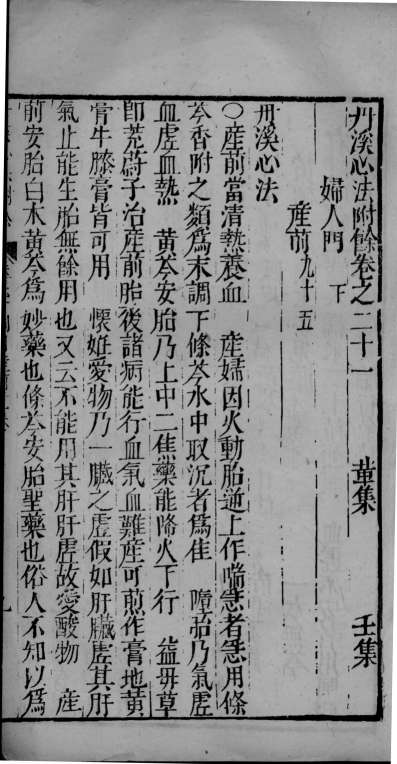 丹溪心法附餘卷之二十一 葷集 壬集
婦人門 下
産前九十五
丹溪心法
○産前當清熱養血 産孺因火動胎逆上作喘急者急用條
芩香附之類爲末調下條芩水中取沉者爲佳 墮胎乃氣虚
血虚血熱 黄芩安胎乃上中二焦藥能降火下行 益毋草
即茺蔚子治産前胎後諸病能行血氣血難産可煎作膏地黄
膏牛膝膏皆可用 懷姙愛物乃一臟之虚假如肝臟虚其肝
氣止能生胎無餘用也又云不能用其肝肝虚故愛酸物 産
前安胎白术黄芩爲妙藥也條芩安胎聖藥也俗人不知以爲